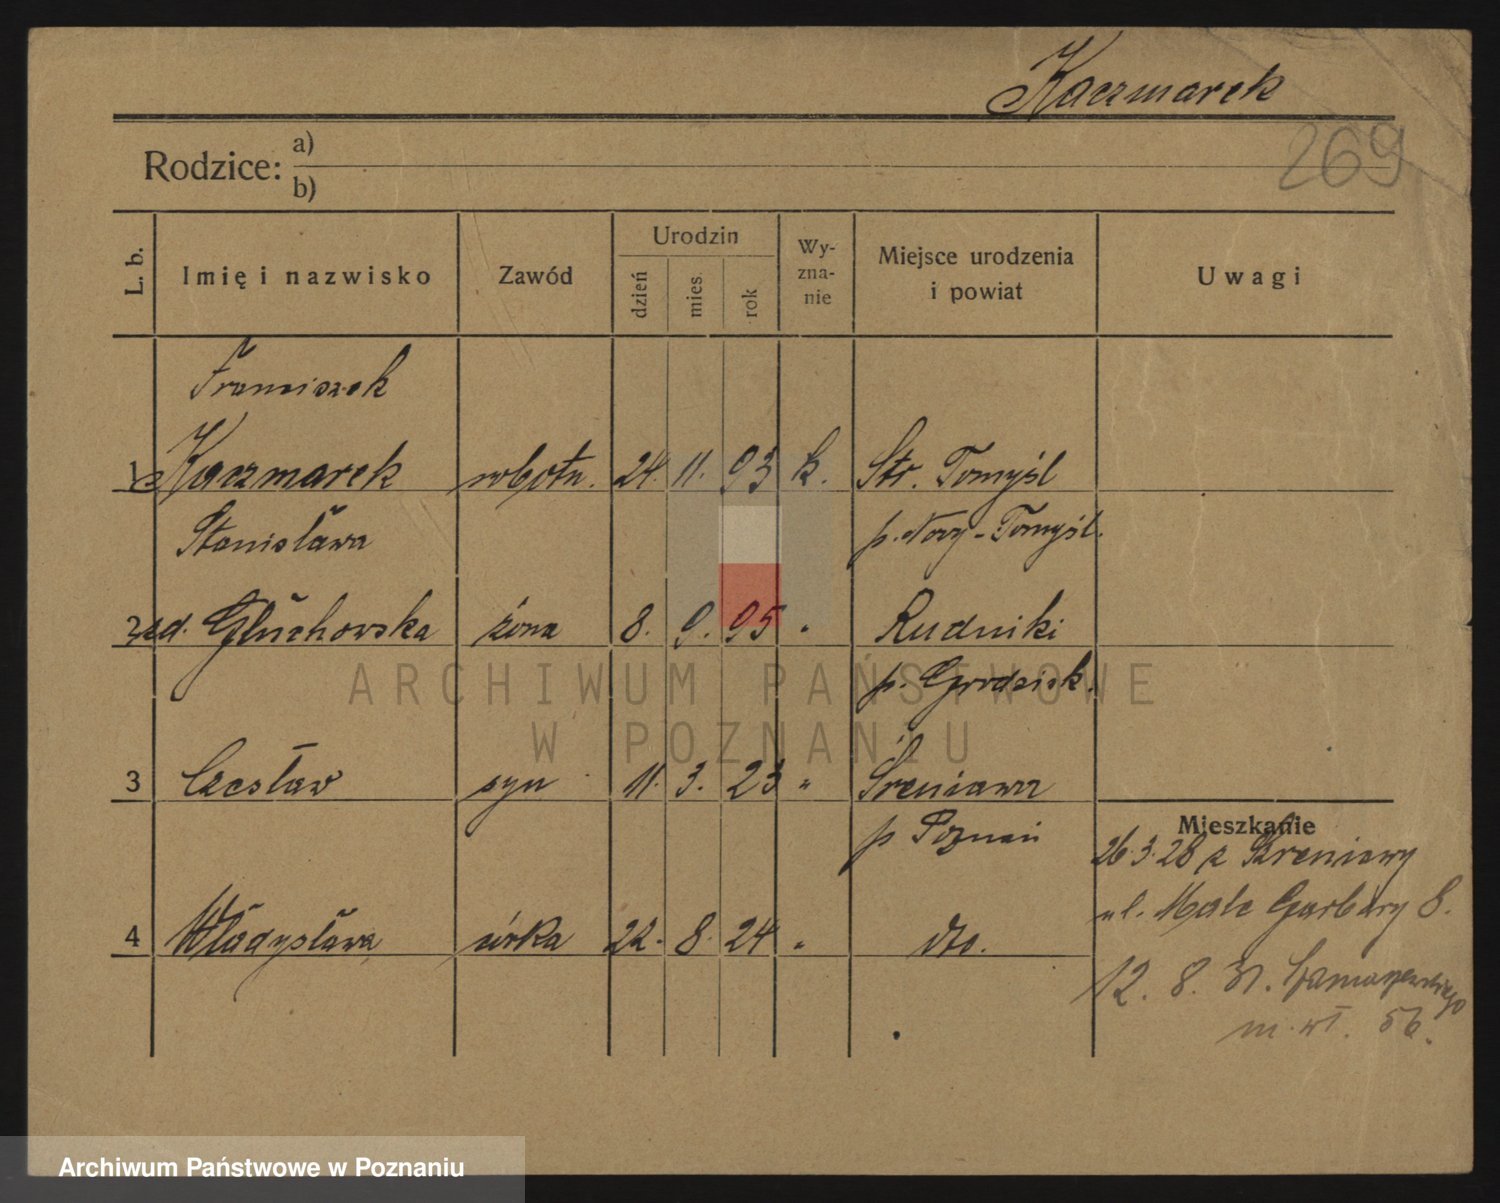 Kaczmarek
269
Rodzice: a)
b)
L. b. Imię i nazwisko Zawód Urodzin dzień mies. rok Wy-zna-nie Miejsce urodzenia i powiat Uwagi
Franciszek
1 Kaczmarek robotn. 24. 11. 93 k. Str. Tomyśl
Stanisława p. Nowy-Tomyśl.
2 zd. Głuchowska żona 8. 9. 95 " Rudniki
p. Grodzisk.
3 Czesław syn 11. 3. 23 " Sreniawa
p Poznań
Mieszkanie
26.3.28 z Sreniawy
4 Władysława córka 22. 8. 24 " dto.
ul. Małe Garbary 8.
12. 8. 31.
m. wł. 56.
ARCHIWUM PAŃSTWOWE
W POZNANIU
Archiwum Państwowe w Poznaniu